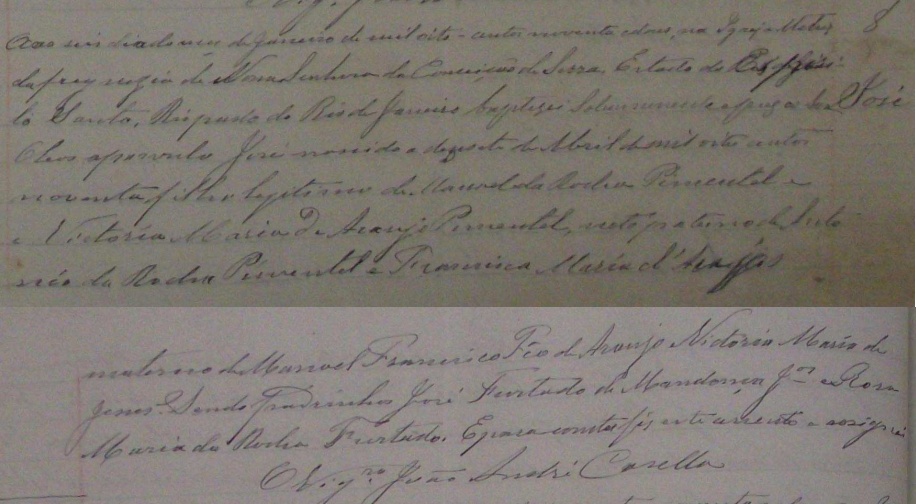 8
José
Aos seis dia do mez de Janeiro de mil oito-centos noventa e dous, na Igreja Matriz
da freguezia de Nossa Senhora da Conceição da Serra, Estado do Espiri-
to Santo, Bispado do Rio de Janeiro baptizei solemnemente e puz os Santos
Oleos a parvulo José nascido a desesete de Abril de mil oito centos
noventa filho legitimo de Manoel da Rocha Pimentel e
e Victoria Maria d'Araujo Pimentel, neto paterno de Anto-
nio da Rocha Pimentel e Francisca Maria d'Araujo
materno de Manoel Francisco Pto d'Araujo Victoria Maria de
Jesus. Sendo Padrinhos José Furtado de Mendonça Jor e Rosa
Maria da Rocha Furtado. E para constar fiz este assento e assignei
O Vigro João André Casella